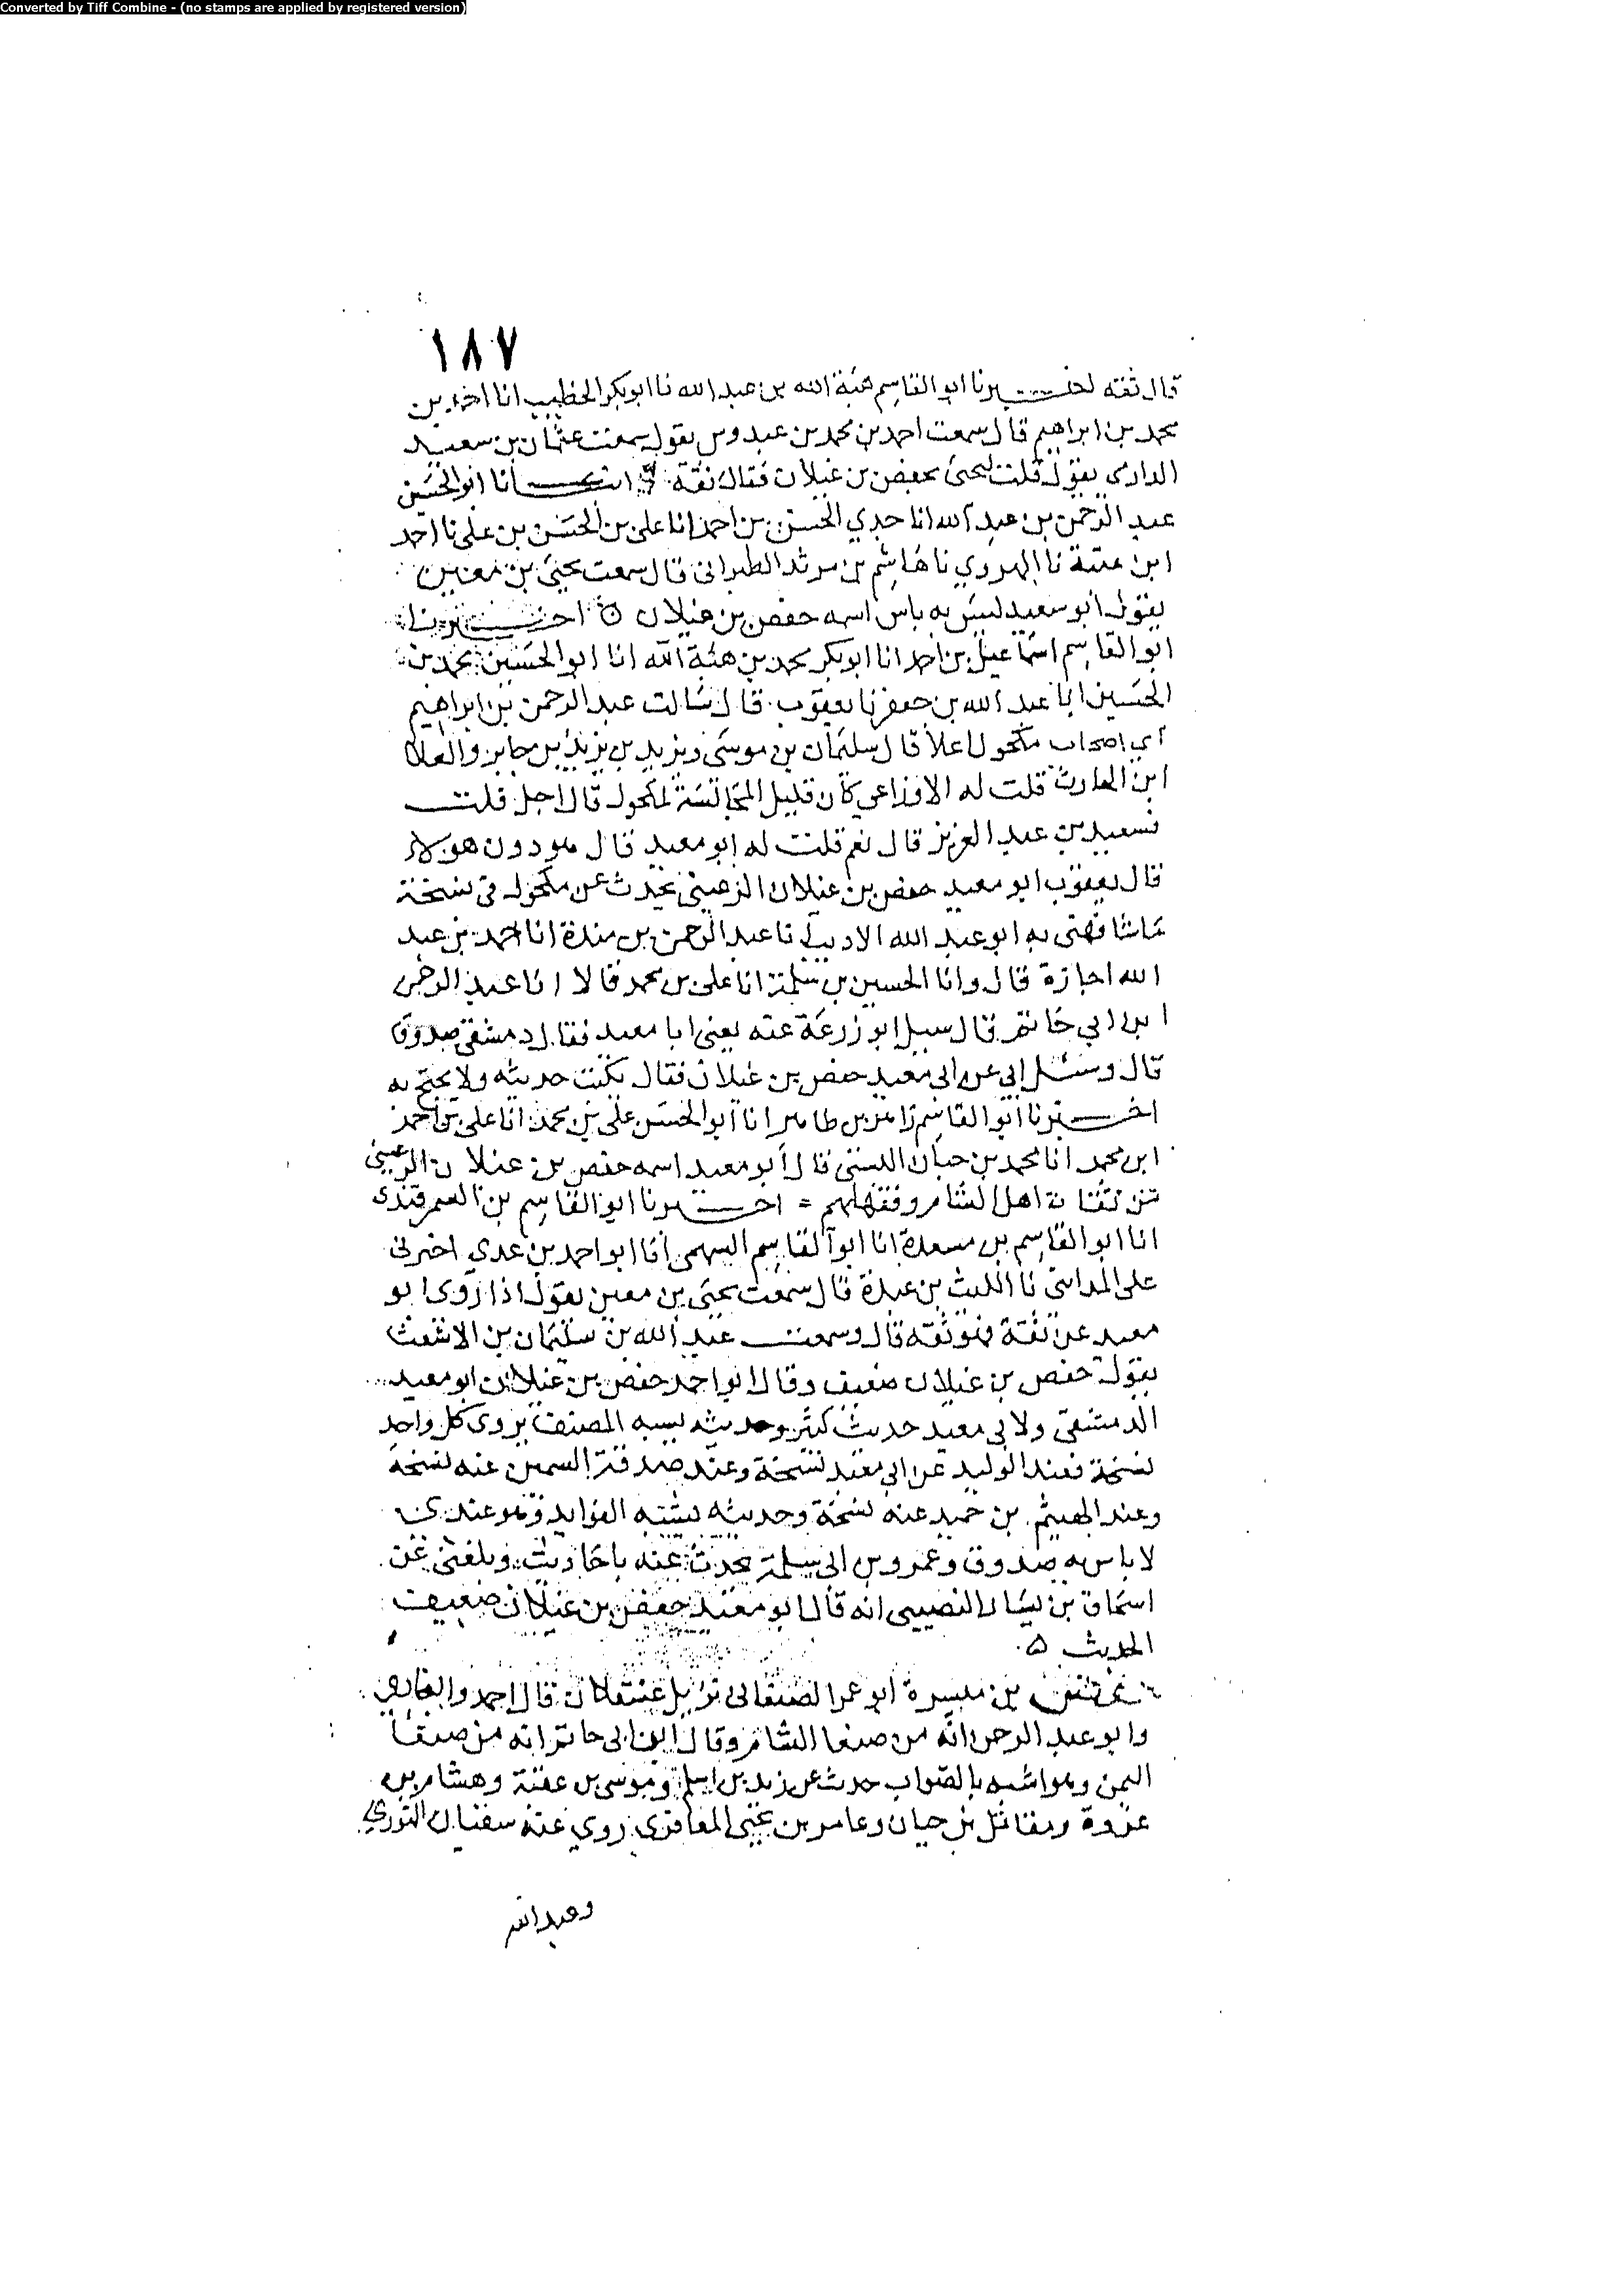 Converted by Tiff Combine - (no stamps are applied by registered version)
١٨٧
قال ثقه اخبرنا ابو القاسم هبة الله بن عبد الله نا ابو بكر الخطيب انا احمد بن
محمد بن ابراهيم قال سمعت احمد بن محمد بن عبدوس يقول سمعت عثمان بن سعيد
الدارى يقول قلت ليحيى بحفص بن غيلان فقال ثقة انا ابو الحسين
عبد الرحمن بن عبد الله انا جدي الحسن بن احمد انا على بن الحسن بن على نا احمد
ابن عتبة نا الهروي نا هاشم بن مرثد الطبرانى قال سمعت يحيى بن معين
يقول ابو سعيد ليس به باس اسمه حفص بن غيلان اخبرنا
ابو القاسم اسماعيل بن احمد انا ابو بكر محمد بن هبة الله انا ابو الحسين محمد بن
الحسين انا عبد الله بن جعفر نا يعقوب قال سالت عبد الرحمن بن ابراهيم
اي اصحاب مكحول اعلا قال سليمان بن موسى ويزيد بن يزيد بن جابر والعلا
ابن الحارث قلت له الاوزاعي كان قليل المجالسة لمكحول قال اجل قلت
فسعيد بن عبد العزيز قال نعم قلت له ابو معيد قال هو دون هولاء
قال يعقوب ابو معيد حفص بن غيلان الرعينى يحدث عن مكحول فى نسخة
ما شافهنى به ابو عبد الله الاديب نا عبد الرحمن بن مندة انا احمد بن عبد
الله اجازة قال وانا الحسين بن سلمة انا على بن محمد قالا انا عبد الرحمن
ابن ابي حاتم قال سيل ابو زرعة عنه يعنى ابا معيد فقال دمشقى صدوق
قال وسئل ابي عن ابى معيد حفص بن غيلان فقال يكتب حديثه ولا يحتج به
اخبرنا ابو القاسم زاهر بن طاهر انا ابو الحسن على بن محمد انا على بن احمد
ابن محمد انا محمد بن حبان البستى قال ابو معيد اسمه حفص بن غيلان الرعينى
من ثقات اهل الشام وفقهايهم = اخبرنا ابو القاسم بن السمرقندى
انا ابو القاسم بن مسعدة انا ابو القاسم السهمى انا ابو احمد بن عدي اخبرنى
على المداينى نا الليث بن عبدة قال سمعت يحيى بن معين يقول اذا روى ابو
معيد عن ثقة فهو ثقه قال وسمعت عبد الله بن سليمان بن الاشعث
يقول حفص بن غيلان ضعيف وقال ابو احمد حفص بن غيلان ابو معيد
الدمشقى ولابى معيد حديث كثير وحديثه يسبه المصنف يروى كل واحد
نسخة فعند الوليد عن ابى معيد نسخة وعند صدقة السمين عنه نسخة
وعند الهيثم بن حميد عنه نسخة وحديثه يشبه الفوايد وهو عندى
لا باس به صدوق وعمرو بن ابى سلمة يحدث عنه باحاديث وبلغنى عن
اسحاق بن يسار النصيبى انه قال ابو معيد حفص بن غيلان ضعيف
الحديث ٥
حفص بن ميسرة ابو عمر الصنعانى نزيل عسقلان قال احمد والبخاري
وابو عبد الرحمن انه من صنعا الشام وقال ابن ابى حاتم انه من صنعا
اليمن وهو اشبه بالصواب حدث عن زيد بن اسلم وموسى بن عقبة وهشام بن
عروة ومقاتل بن حيان وعامر بن يحيى المعافرى روي عنه سفيان الثوري
وعبد الله